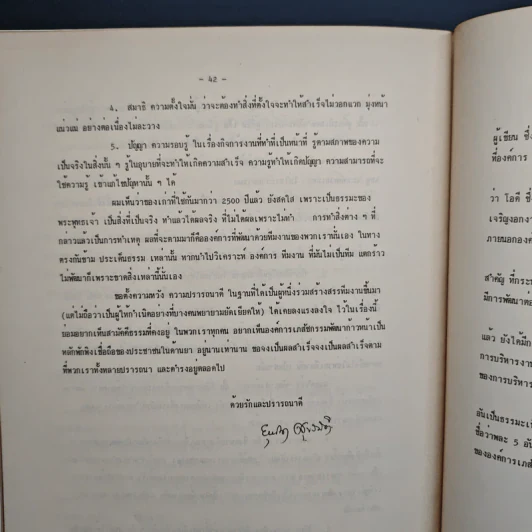 - 42 -
4. สมาธิ ความตั้งใจมั่น ว่าจะต้องทำสิ่งที่ตั้งใจจะทำให้สำเร็จไม่วอกแวก มุ่งหน้า
แน่วแน่ อย่างต่อเนื่องไม่ละวาง
5. ปัญญา ความรอบรู้ ในเรื่องกิจการงานที่ทำที่เป็นหน้าที่ รู้ตามสภาพของความ
เป็นจริงในสิ่งนั้น ๆ รู้ในอุบายที่จะทำให้เกิดความสำเร็จ ความรู้ทำให้เกิดปัญญา ความสามารถที่จะ
ใช้ความรู้ เข้าแก้ไขปัญหานั้น ๆ ได้
ผมเห็นว่าของเก่าที่ใช้กันมากว่า 2500 ปีแล้ว ยังสดใส เพราะเป็นธรรมะของ
พระพุทธเจ้า เป็นสิ่งที่เป็นจริง ทำแล้วได้ผลจริง ที่ไม่ได้ผลเพราะไม่ทำ การทำสิ่งต่าง ๆ ที่
กล่าวแล้วเป็นการทำเหตุ ผลที่จะตามมาก็คือองค์การที่พัฒนาด้วยทีมงานของพวกเรานั่นเอง ในทาง
ตรงกันข้าม ประเด็นธรรม เหล่านั้น หากนำไปวิเคราะห์ องค์การ ทีมงาน ที่มันไม่เป็นทีม แตกร้าว
ไม่พัฒนาก็เพราะขาดสิ่งเหล่านี้นั่นเอง
ขอตั้งความหวัง ความปรารถนาดี ในฐานที่ได้เป็นผู้หนึ่งร่วมสร้างสรรทีมงานขึ้นมา
(แต่ไม่ถือว่าเป็นผู้ให้กำเนิดอย่างที่บางคนพยายามยัดเยียดให้) ได้เคยลงแรงลงใจ ไว้ในเรื่องนี้
ย่อมอยากเห็นสามัคคีธรรมที่คงอยู่ ในพวกเราทุกคน อยากเห็นองค์การเภสัชกรรมพัฒนาก้าวหน้าเป็น
หลักพักพิงเชื่อถือของประชาชนในด้านยา อยู่นานเท่านาน ขอจงเป็นผลสำเร็จจงเป็นผลสำเร็จตาม
ที่พวกเราทั้งหลายปรารถนา และดำรงอยู่ตลอดไป
ด้วยรักและปรารถนาดี
ผู้เขียน ซึ่
ที่องค์การ
ว่า โอดี ซึ่
เจริญงอกงา
ภายนอกองค์
สำคัญ ที่กระ
มีการพัฒนาต่อ
แล้ว ยังได้มีก
การบริหารงา
ของการบริหาร
อันเป็นธรรมะเ
ชื่อว่าพละ 5 อัน
ขององค์การเภสั